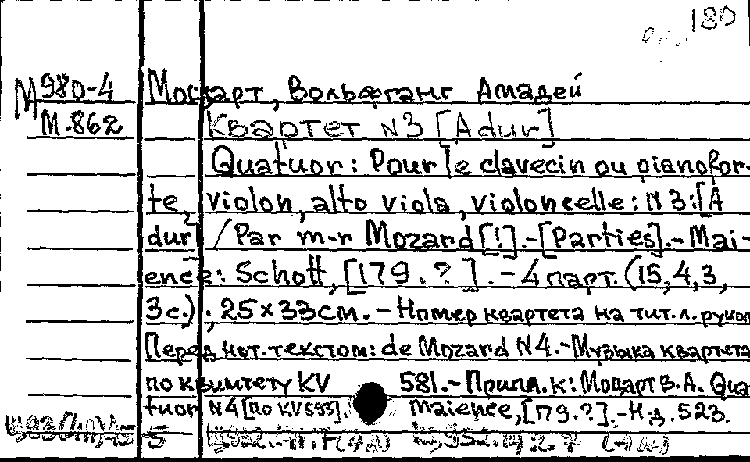 180
М980-4 Моцарт, Вольфганг Амадей
М-862 Квартет N3 [A dur]
Quatuor: Pour le clavecin ou pianofor-
te, violon, alto viola, violoncelle: N 3: [A
dur] / Par m-r Mozard [!].-[Parties].- Mai-
ence: Schott, [179.?]. - 4 парт. (15, 4, 3,
3 с.); 25×33 см. - Номер квартета на тит. л. рукоп
Перед нот. текстом: de Mozard N4.-Музыка квартета
по квинтету KV 581.- Припл. к: Моцарт В.А. Qua
tuor N4 [по KV593]. Maience, [179.?].-Н.д. 523.